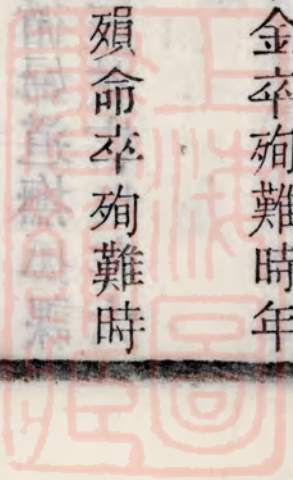 金卒殉難時年
殞命卒殉難時